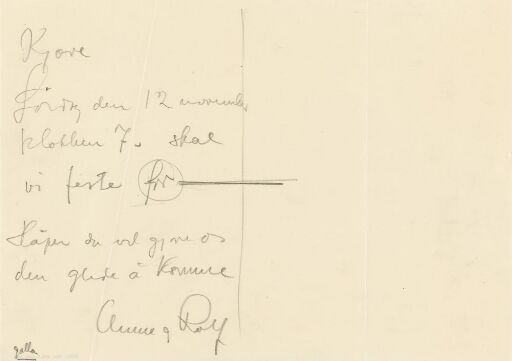 Kjære
Lørdag den 12 november
klokken 7. skal
vi feste for
Håper du vil gjøre os
den glede å komme
Anne og Rolf
galla